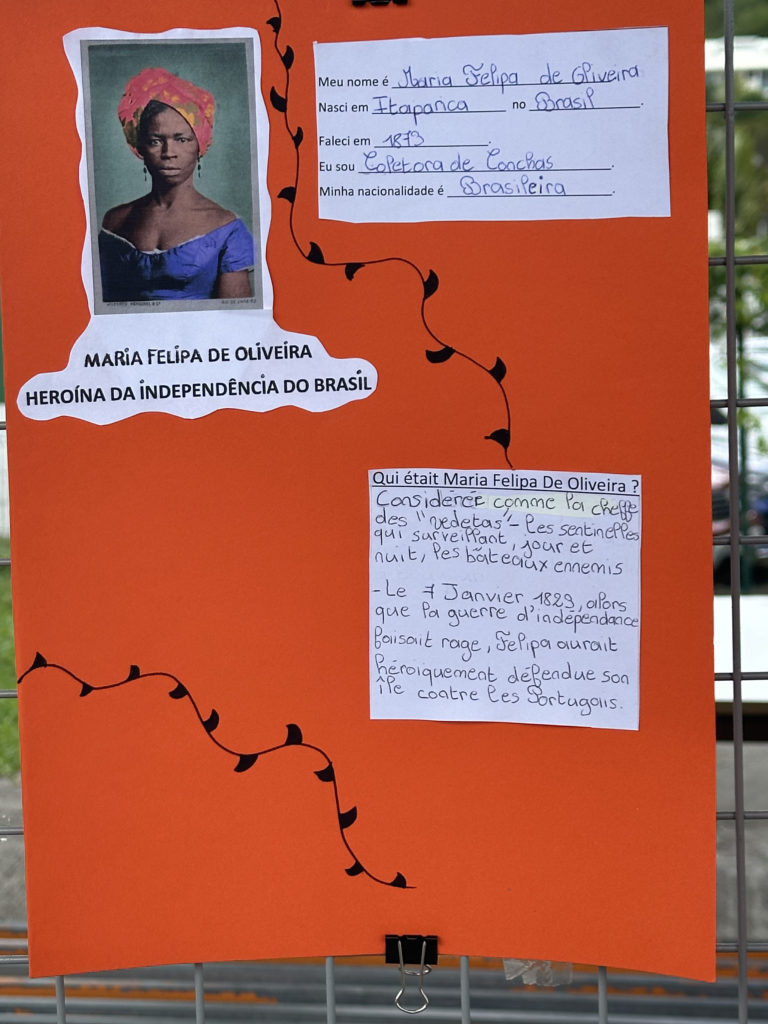 Meu nome é Maria Felipa de Oliveira
Nasci em Itaparica no Brasil.
Faleci em 1873.
Eu sou Coletora de Conchas.
Minha nacionalidade é Brasileira.
MARIA FELIPA DE OLIVEIRA
HEROÍNA DA INDEPENDÊNCIA DO BRASIL
Qui était Maria Felipa De Oliveira ?
Considérée comme la cheffe
des "vedetas" - les sentinelles
qui surveillant, jour et
nuit, les bâteaux ennemis
- Le 7 Janvier 1823, alors
que la guerre d'indépendance
faisait rage, Felipa aurait
héroïquement défendue son
île contre les Portugais.